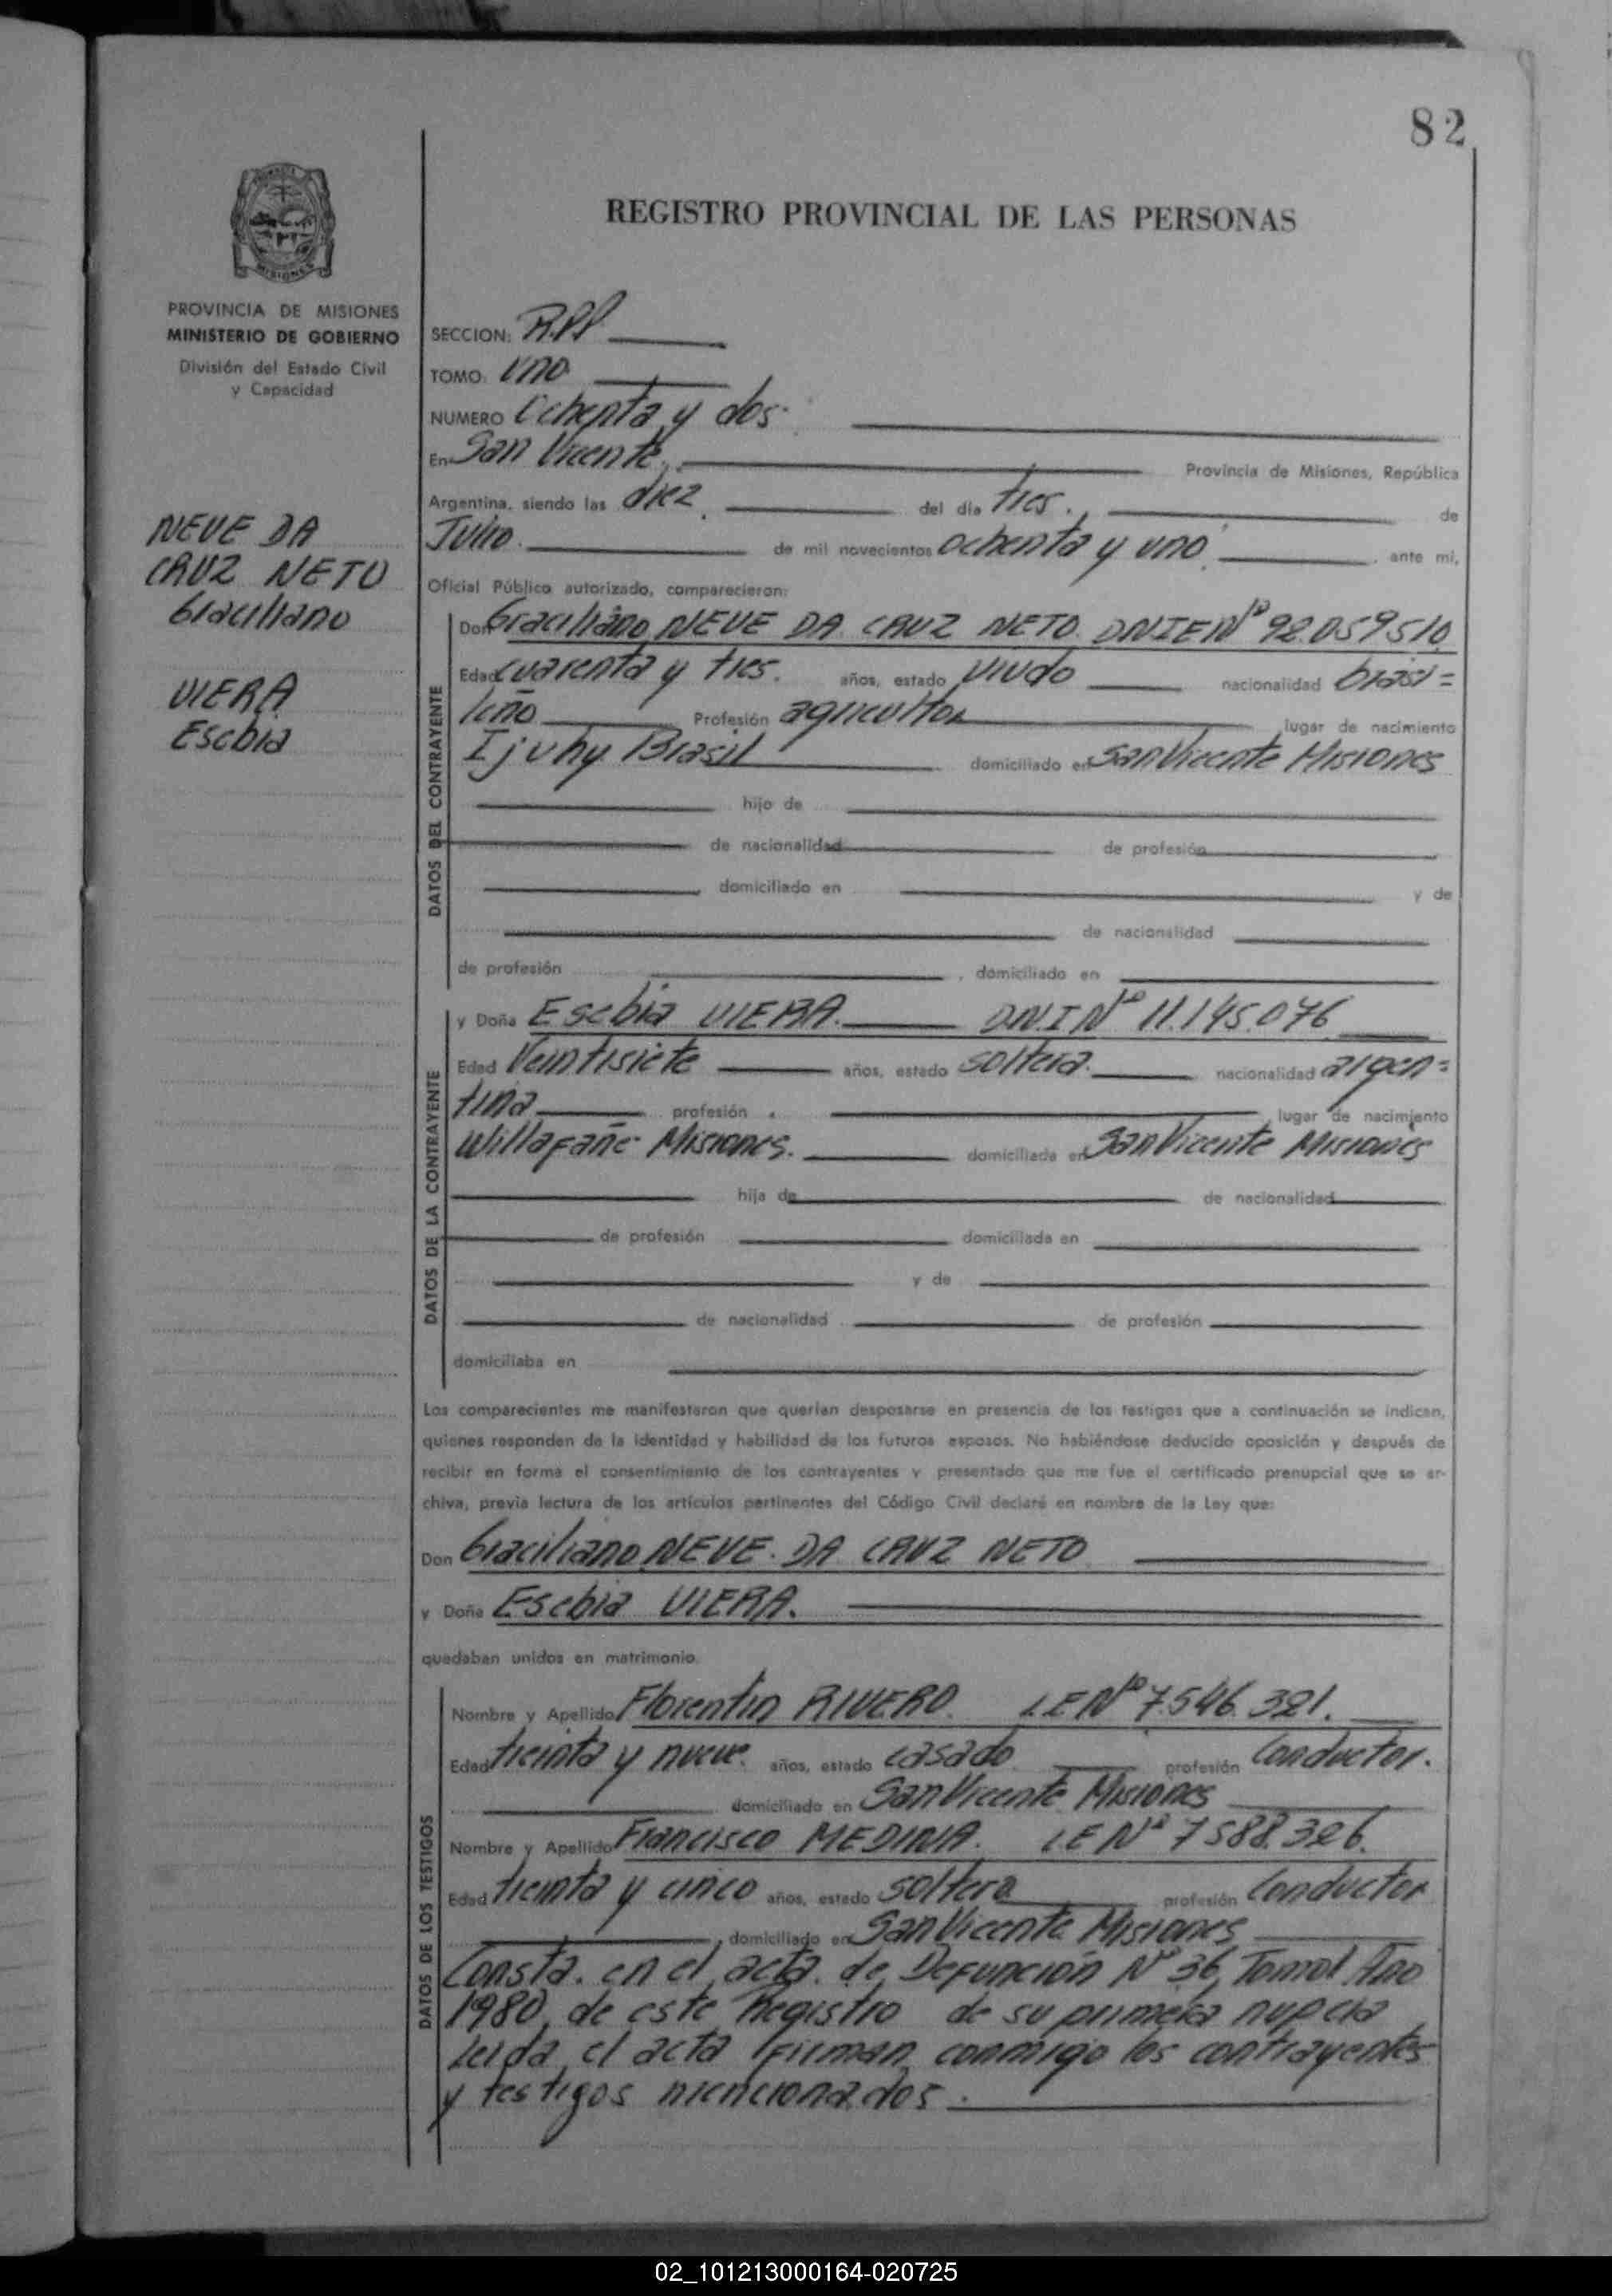 82
REGISTRO PROVINCIAL DE LAS PERSONAS
PROVINCIA DE MISIONES
MINISTERIO DE GOBIERNO
División del Estado Civil
y Capacidad
SECCION: R.P.P.
TOMO: Uno
NUMERO Ochenta y dos
En San Vicente, Provincia de Misiones, República
Argentina, siendo las diez del día tres. de
Julio de mil novecientos ochenta y uno, ante mí,
NEVE DA
CRUZ NETO
Graciliano
VIERA
Esebia
Oficial Público autorizado, comparecieron:
DATOS DEL CONTRAYENTE
Don Graciliano NEVE DA CRUZ NETO DNIE Nº 92.059510
Edad cuarenta y tres. años, estado viudo nacionalidad brasi=
leño Profesión agricultor lugar de nacimiento
Ijuhy Brasil domiciliado en San Vicente Misiones
hijo de
de nacionalidad de profesión
domiciliado en y de
de nacionalidad
de profesión , domiciliado en
DATOS DE LA CONTRAYENTE
y Doña Esebia VIERA. DN.I Nº 11.145.076
Edad Veintisiete años, estado soltera. nacionalidad argen=
tina profesión lugar de nacimiento
Willafañe Misiones. domiciliada en San Vicente Misiones
hija de de nacionalidad
de profesión domiciliada en
y de
de nacionalidad de profesión
domiciliaba en
Los comparecientes me manifestaron que querían desposarse en presencia de los testigos que a continuación se indican,
quienes responden de la identidad y habilidad de los futuros esposos. No habiéndose deducido oposición y después de
recibir en forma el consentimiento de los contrayentes y presentado que me fue el certificado prenupcial que se ar-
chiva, previa lectura de los artículos pertinentes del Código Civil declaré en nombre de la Ley que:
Don Graciliano NEVE DA CRUZ NETO
y Doña Esebia VIERA.
quedaban unidos en matrimonio.
DATOS DE LOS TESTIGOS
Nombre y Apellido Florentin RIVERO. LE Nº 7.546.321.
Edad treinta y nueve. años, estado casado profesión Conductor.
domiciliado en San Vicente Misiones
Nombre y Apellido Francisco MEDINA. LE Nº 7588.326.
Edad treinta y cinco años, estado soltero profesión Conductor
, domiciliado en San Vicente Misiones
Consta. en el acta. de Defunción Nº 36, Tomo 1 Año
1980, de este Registro de su primera nupcia
Leida el acta firman conmigo los contrayentes
y testigos mencionados.
02_101213000164-020725